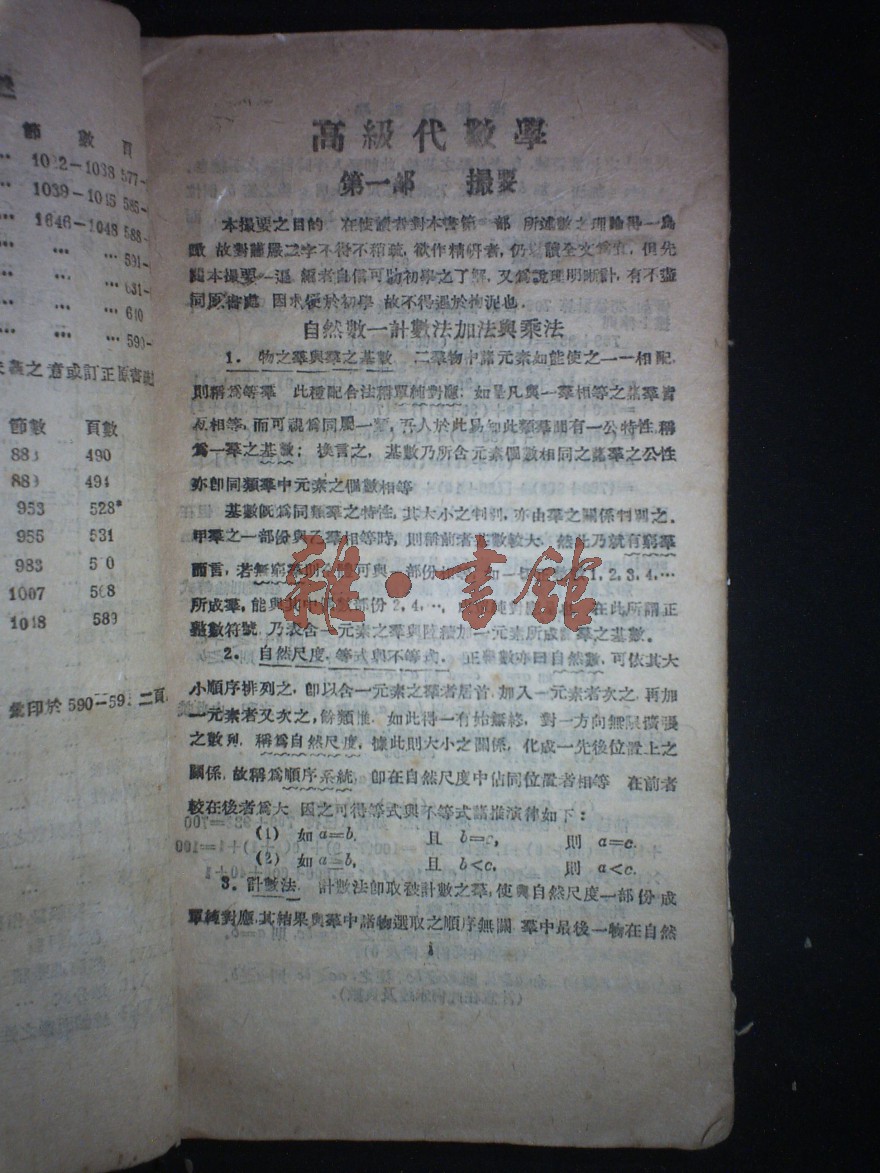 節 數 頁
1012-1038 577-
1039-1045 585-
1046-1048 588-
591-
631-
640
590-
之意或訂正原書
節數 頁數
883 490
889 494
953 528*
955 531
983
1007 568
1018 589
彙印於 590-591 二頁
高級代數學
第一部 撮要
本撮要之目的 在使讀者對本書第一部 所述數之理論得一鳥
瞰 故對謹嚴二字不得不稍疏，欲作精研者，仍以讀全文爲宜，但先
閱本撮要一遍 編者自信可助初學之了解，又爲說理明晰計，有不盡
同原書處 因求便於初學 故不得過於拘泥也．
自然數—計數法加法與乘法
1．物之羣與羣之基數 二羣物中諸元素如能使之一一相配，
則稱爲等羣 此種配合法稱單純對應．如是凡與一羣相等之諸羣皆
互相等，而可視爲同屬一類，吾人於此易知此類羣間有一公特性，稱
爲一羣之基數；換言之，基數乃所含元素個數相同之諸羣之公性
亦卽同類羣中元素之個數相等
基數旣爲同類羣之特性，其大小之判別，亦由羣之關係判別之．
甲羣之一部份與乙羣相等時，則稱前者基數較大，然此乃就有窮羣
而言，若無窮羣則 可與一部份 如一 1，2，3，4，…
所成羣，能與其中偶數部份 2，4，…，成單純對應 在此所謂正
整數符號 乃表含一元素之羣與陸續加一元素所成諸羣之基數．
2．自然尺度，等式與不等式． 正整數亦曰自然數，可依其大
小順序排列之，卽以含一元素之羣者居首，加入一元素者次之，再加
一元素者又次之，餘類推．如此得一有始無終，對一方向無限擴張
之數列，稱爲自然尺度，據此則大小之關係，化成一先後位置上之
關係，故稱爲順序系統，卽在自然尺度中佔同位置者相等 在前者
較在後者爲大 因之可得等式與不等式諸推演律如下：
(1) 如 a=b， 且 b=c， 則 a=c．
(2) 如 a=b， 且 b<c， 則 a<c．
3．計數法． 計數法卽取被計數之羣，使與自然尺度一部份成
單純對應，其結果與羣中諸物選取之順序無關 羣中最後一物在自然
雜·書館